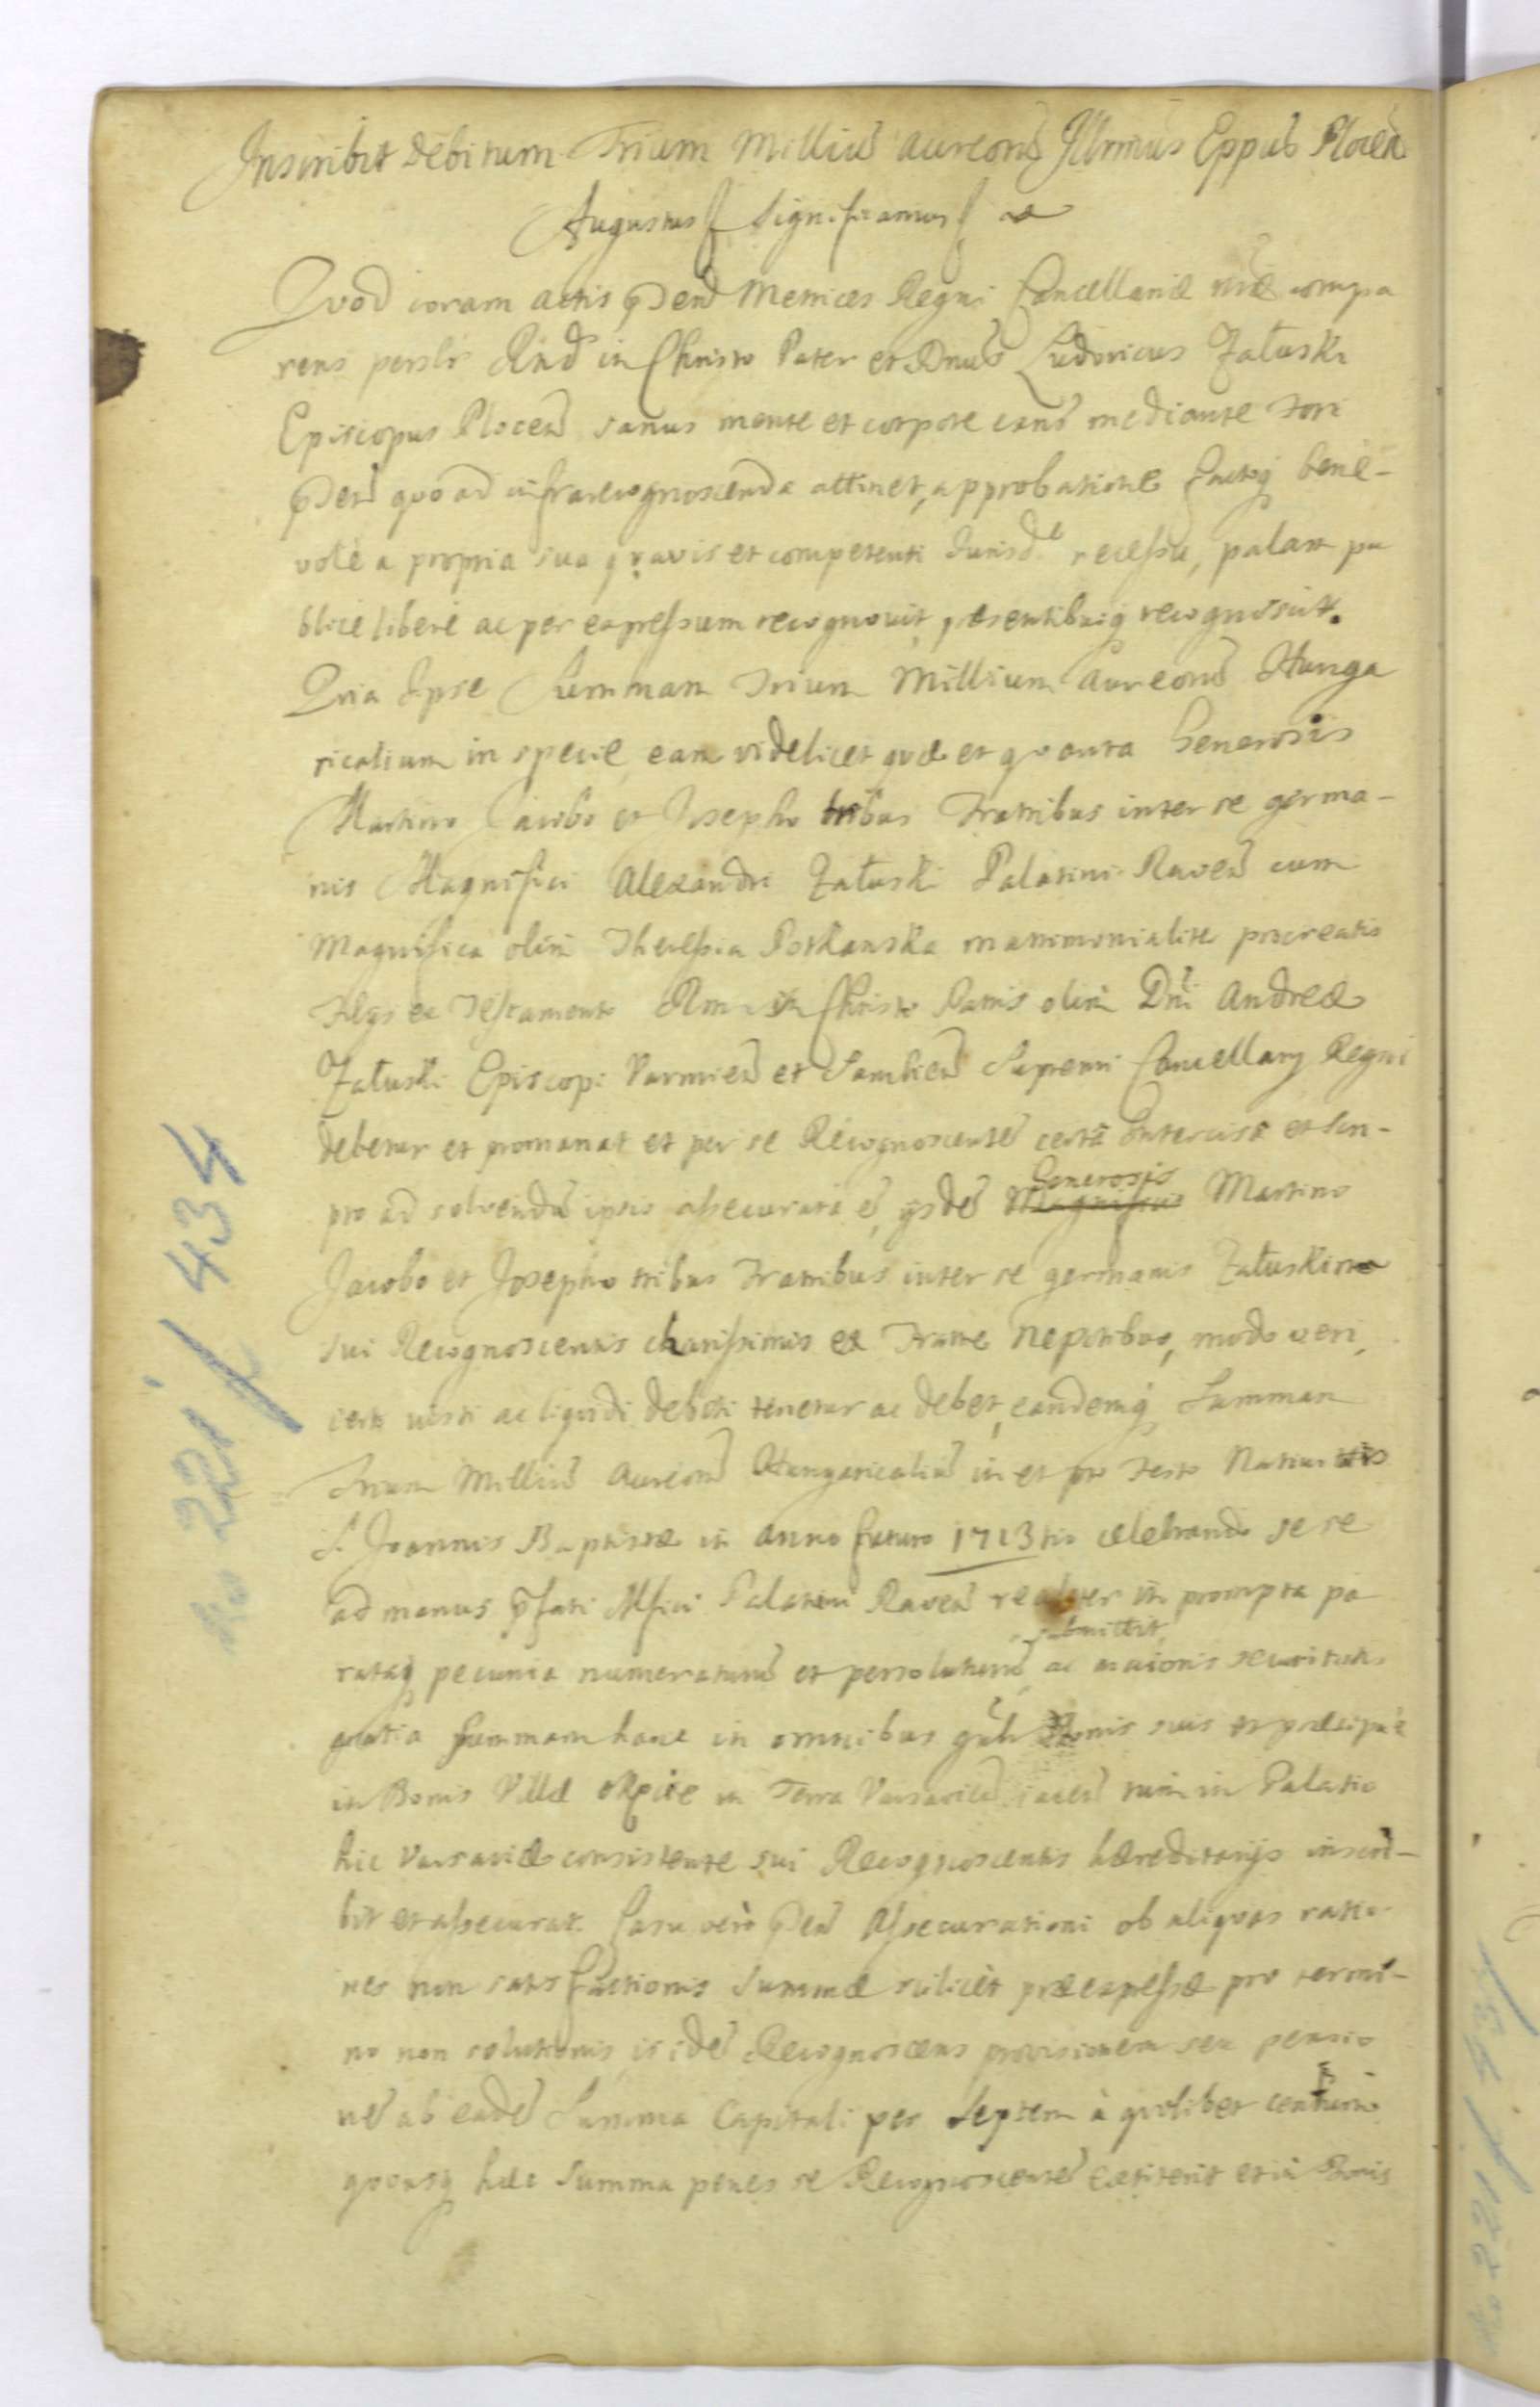 Inscribit Debitum Trium Milliū aureorū Illrmus Eppūs Plocen̄
Augustus Significamus &
Quod coram actis pden̄ Metrices Regni Cancellariæ nræ compa
rens persl̄r Rnd̄ in Christo Pater et Dnūs Ludovicus Załuski
Episcopus Plocen̄ sanus mente et corpore existens̄ mediante Fori
pden̄ quo ad infrarecognoscenda attinet, approbatione factoq bene-
vole a propria sua quavis et competenti Jurisd̄e recessu, palam pu
blice libere ac per expressum recognovit, præsentibusq recognoscit.
Quia Ipse Summam Trium Millium Aureorū Hunga
ricalium in specie, eam videlicet quæ et quanta Generosis
Martino Jacobo et Josepho tribus Fratribus inter se germa-
nis Magnifici Alexandri Załuski Palatini Raven̄ cum
Magnifica olim Theressia Potkanska matrimonialite procreatis
Filijs ex Testamento Rmi in Christo Patris olim Dn̄i Andreæ
Załuski Episcopi Varmien̄ et Sambien̄ Supremi Cancellarij Regni
debetur et promanat et per se Recognoscentē certā Intercisā et Scri-
pto ad solvendū ipsis assecurata ē, ijsdē Generosis Magnificis Martino
Jacobo et Josepho tribus Fratribus inter se germanis Załuskim
sui Recognoscentis charissimis ex Fratre Nepotibus, modo veri,
certi justi ac liquidi debiti tenetur ac debet, eandemq Summam
Trium Milliū Aureorū Hungaricaliū in et pro Festo Nativitatis
S. Joannis Baptistæ in anno futuro 1713tio celebrando se se
ad manus pfati Mfici Palatini Raven̄ realiter in prompta pa
rataq pecunia numeraturū et persoluturū submittit, ac maioris securitatis
gratia summam hanc in omnibus gn̄li Bonis suis et præcipuè
in Bonis Villæ in Terra Varsavien̄ iacen̄ tum in Palatio
hic Varsaviæ consistente sui Recognoscentis hæreditarijs inscri-
bit et assecurat. Casu verò pden̄ Assecurationi ob aliquas ratio
nes non satisfactionis Summæ scilicèt præexpressæ pro termi-
no non solutionis is idē Recognoscens provisionem seu pensio
nē ab eadē Summa Capitali per Septem à quolibet centum
quousq hæc Summa penes se Recognoscentē extiterit et in Bonis
No 221 / 434